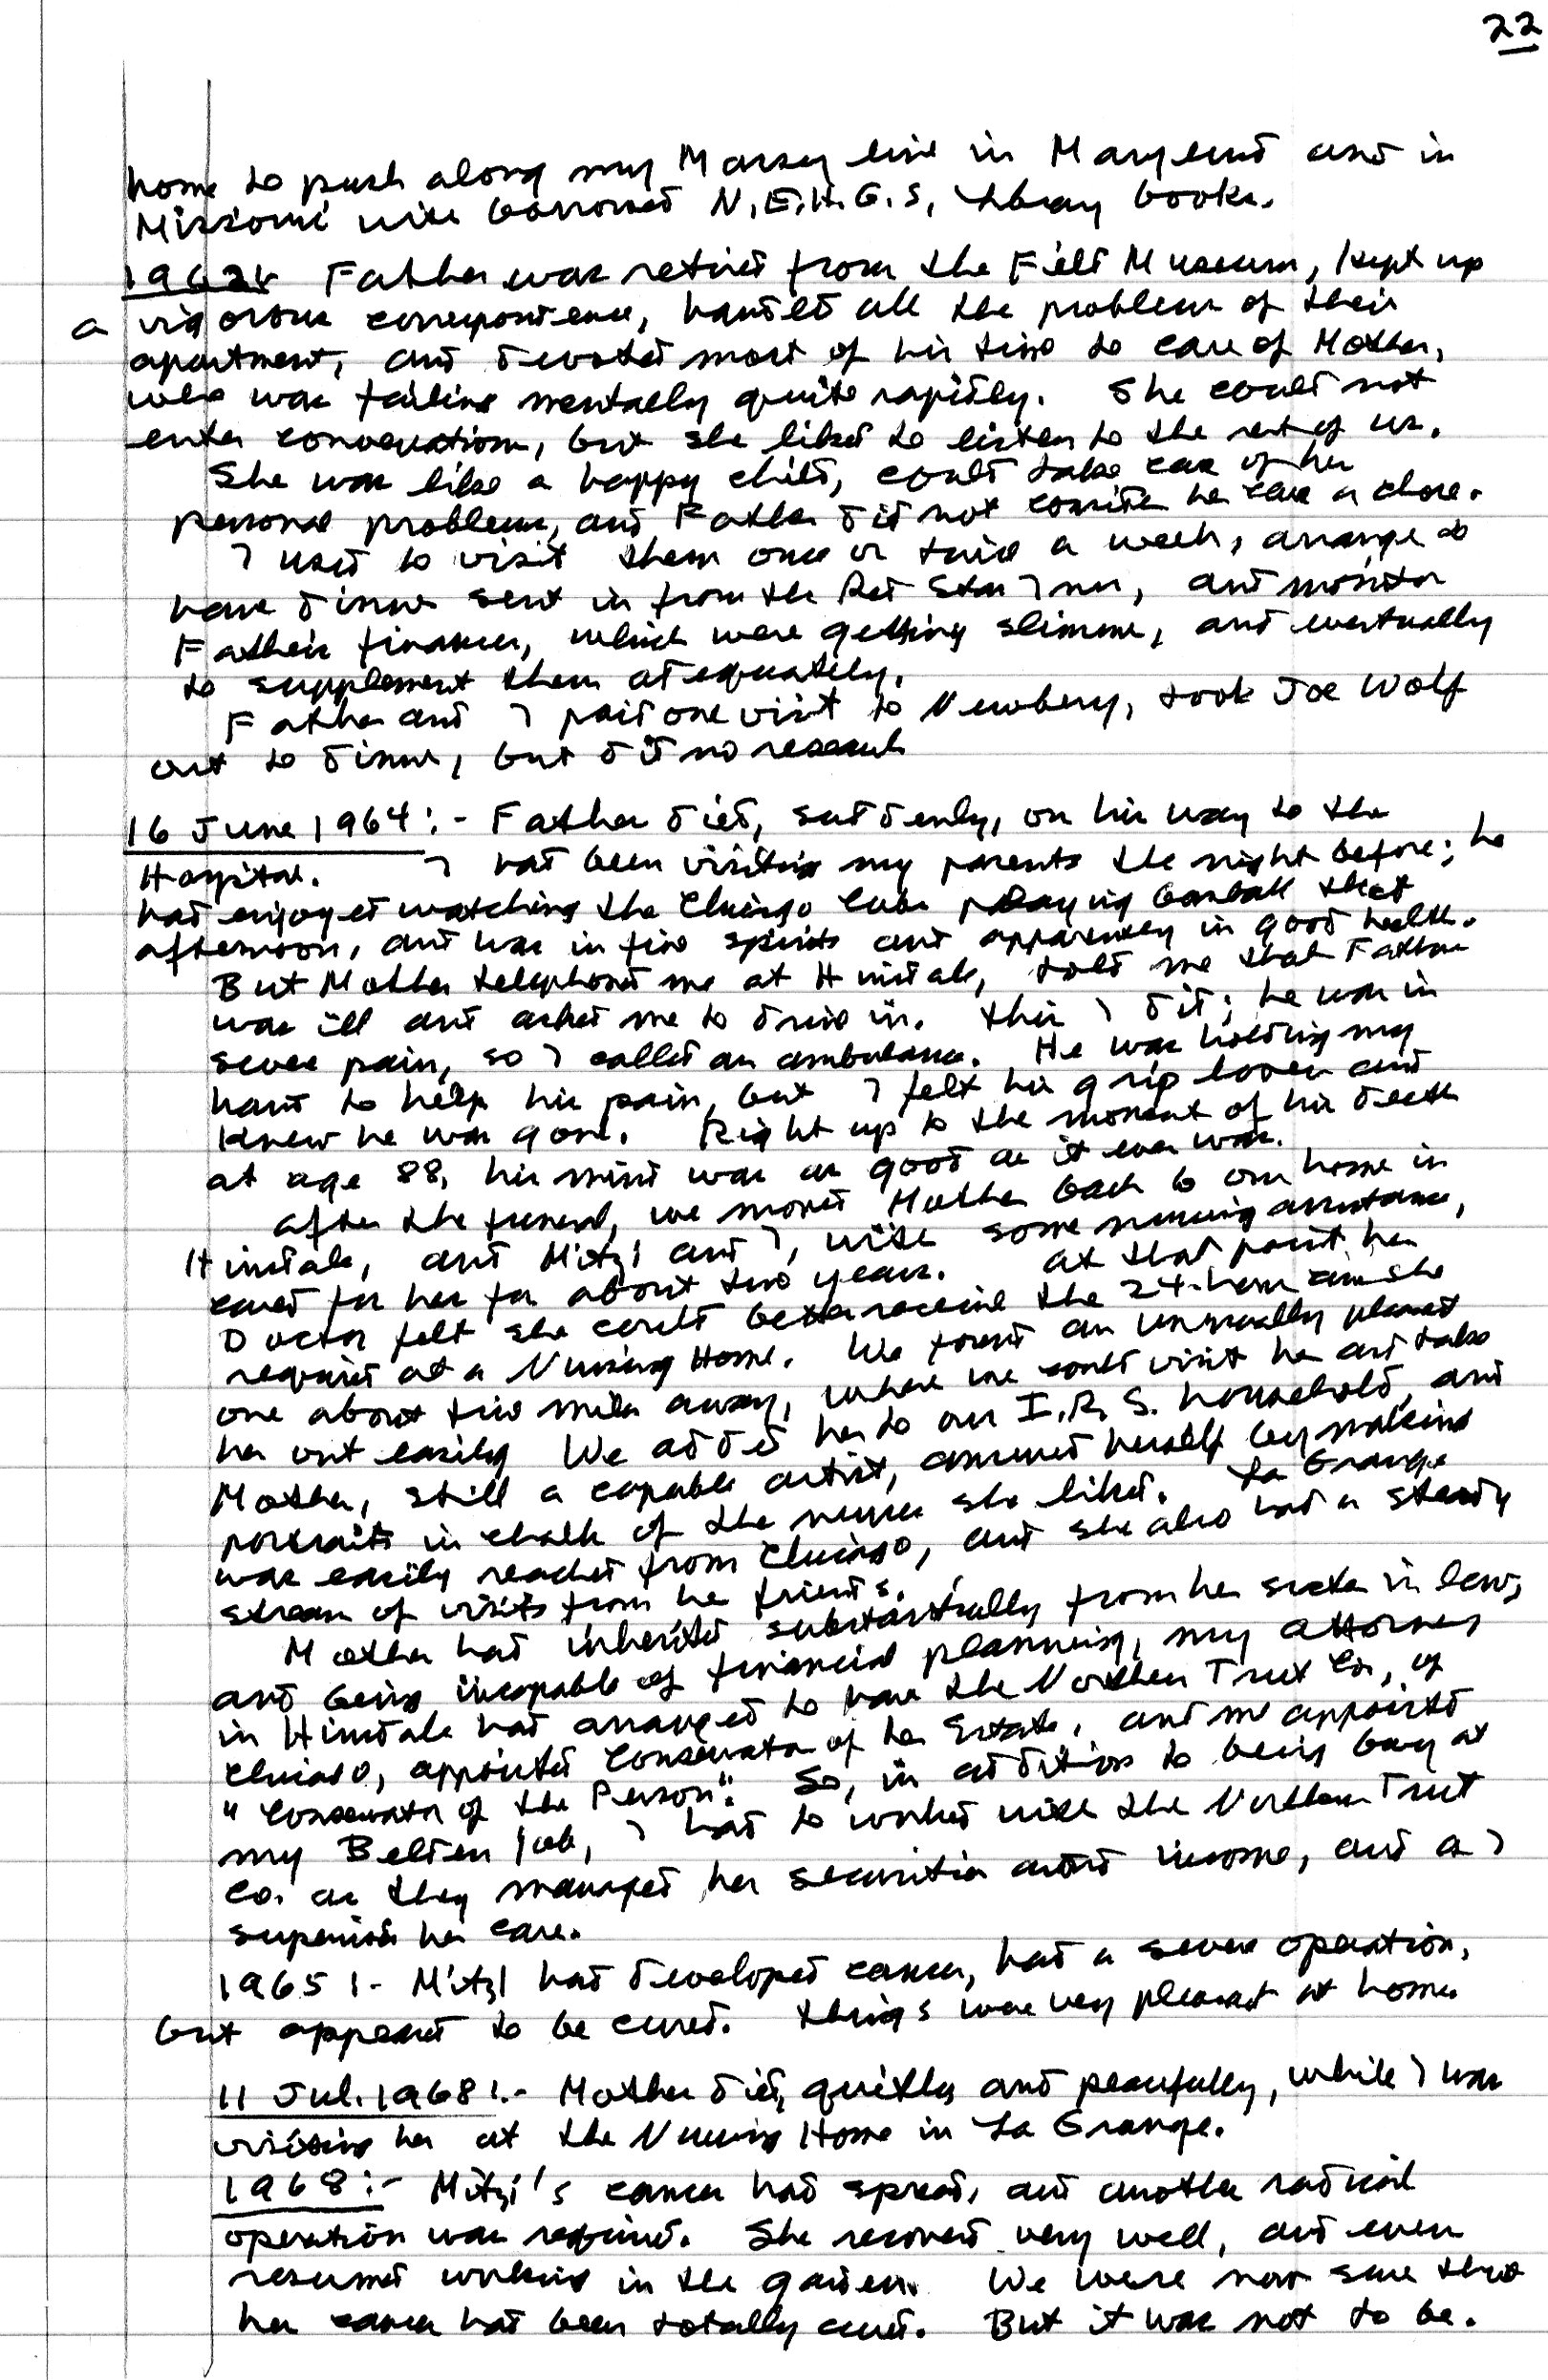 22
home to push along my Massey line in Maryland and in
Missouri with borrowed N.E.H.G.S. Library books.
1962 Father was retired from the Field Museum, kept up
a vigorous correspondence, handled all the problems of their
apartment, and devoted most of his time to care of Mother,
who was failing mentally quite rapidly. She could not
enter conversation, but she liked to listen to the rest of us.
She was like a happy child, could take care of her
personal problems, and Father did not consider her care a chore.
I used to visit them once or twice a week, arrange to
have dinner sent in from the Red Star Inn, and monitor
Father's finances, which were getting slimmer, and eventually
to supplement them adequately.
Father and I paid one visit to Newberry, took Joe Wolf
out to dinner, but did no research
16 June 1964:- Father died, suddenly, on his way to the
Hospital. I had been visiting my parents the night before; he
had enjoyed watching the Chicago Cubs playing baseball that
afternoon, and was in fine spirits and apparently in good health.
But Mother telephoned me at Hinsdale, told me that Father
was ill and asked me to drive in. This I did; he was in
severe pain, so I called an ambulance. He was holding my
hand to help his pain, but I felt his grip loosen and
knew he was gone. Right up to the moment of his death
at age 88, his mind was as good as it ever was.
After the funeral, we moved Mother back to our home in
Hinsdale, and Mitzi and I, with some nursing assistance,
cared for her for about two years. At that point her
Doctor felt she could better receive the 24-hour care she
required at a Nursing Home. We found an unusually pleasant
one about five miles away, where we could visit her and take
her out easily. We added her to our I.R.S. household, and
Mother, still a capable artist, amused herself by making
portraits in chalk of the nurses she liked. La Grange
was easily reached from Chicago, and she also had a steady
stream of visits from her friends.
Mother had inherited substantially from her sister in law,
and being incapable of financial planning, my attorney
in Hinsdale had arranged to have the Northern Trust Co., of
Chicago, appointed Conservator of her Estate, and me appointed
"Conservator of the Person". So, in addition to being busy at
my Belden job, I had to worked with the Northern Trust
Co. as they managed her securities and income, and as I
supervised her care.
1965:- Mitzi had developed cancer, had a severe operation,
but appeared to be cured. Things were very pleasant at home.
11 Jul. 1968:- Mother died, quietly and peacefully, while I was
visiting her at the Nursing Home in La Grange.
1968:- Mitzi's cancer had spread, and another radical
operation was required. She recovered very well, and even
resumed working in the garden. We were now sure that
her cancer had been totally cured. But it was not to be.